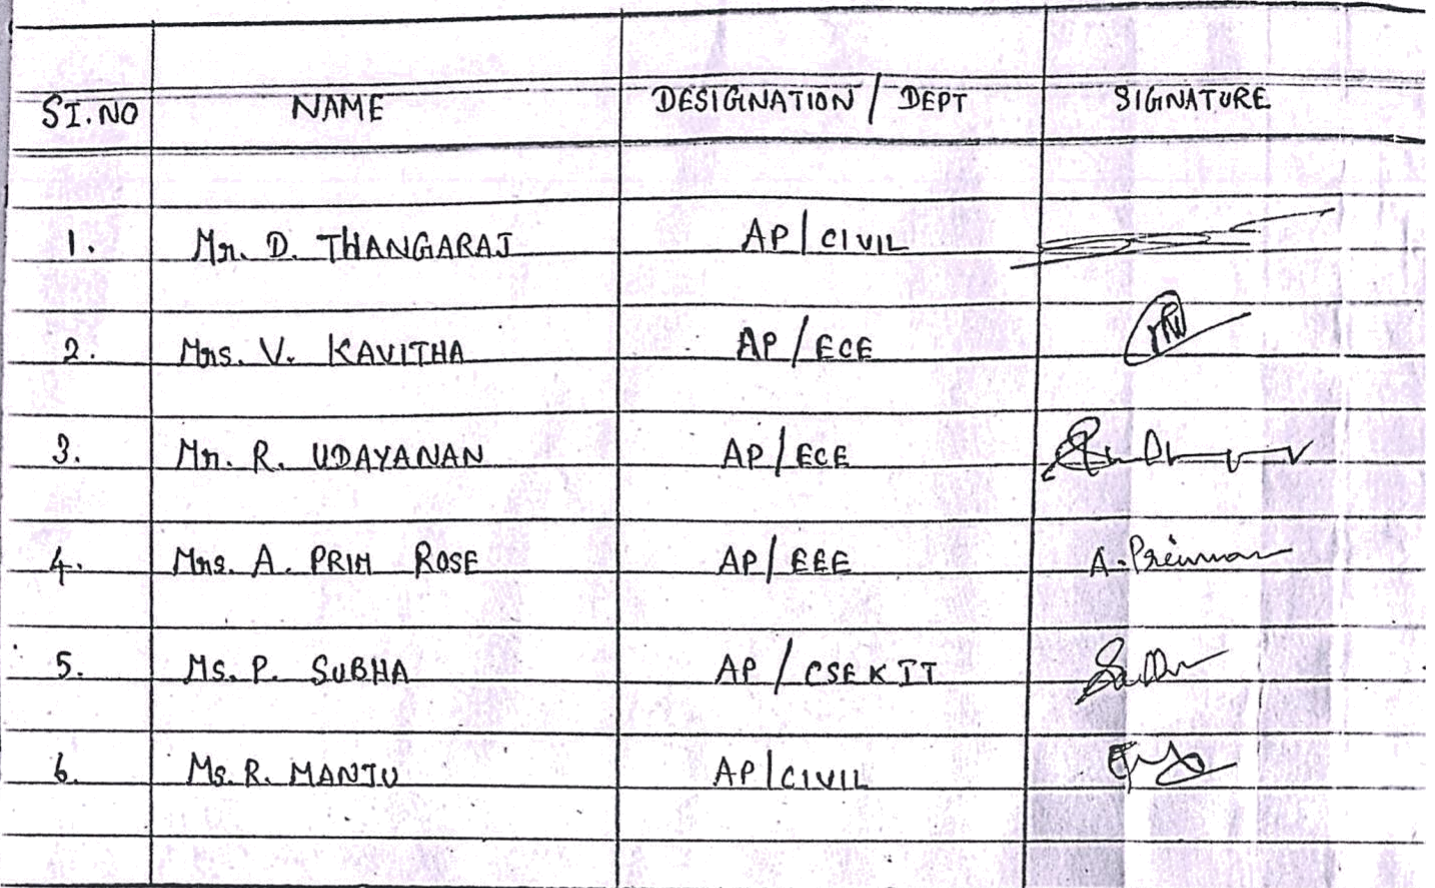 SI.NO NAME DESIGNATION / DEPT SIGNATURE
1. Mr. D. THANGARAJ AP/CIVIL
2. Mrs. V. KAVITHA AP/ECE
3. Mr. R. UDAYANAN AP/ECE
4. Mrs. A. PRIM ROSE AP/EEE A.
5. Ms. P. SUBHA AP/CSE & IT
6. Ms. R. MANJU AP/CIVIL